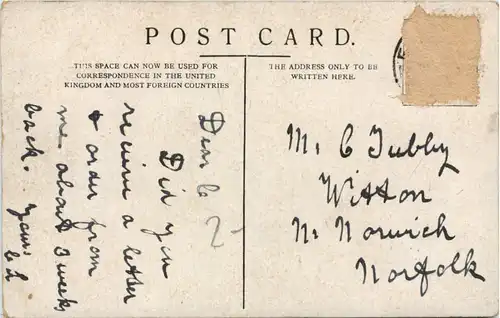 POST CARD.
THIS SPACE CAN NOW BE USED FOR
CORRESPONDENCE IN THE UNITED
KINGDOM AND MOST FOREIGN COUNTRIES
THE ADDRESS ONLY TO BE
WRITTEN HERE.
Dear C
Did you
recieve a letter
& order from
me about 3 weeks
back. Yours
2-
Mr C Tubby
Witton
Nr Norwich
Norfolk